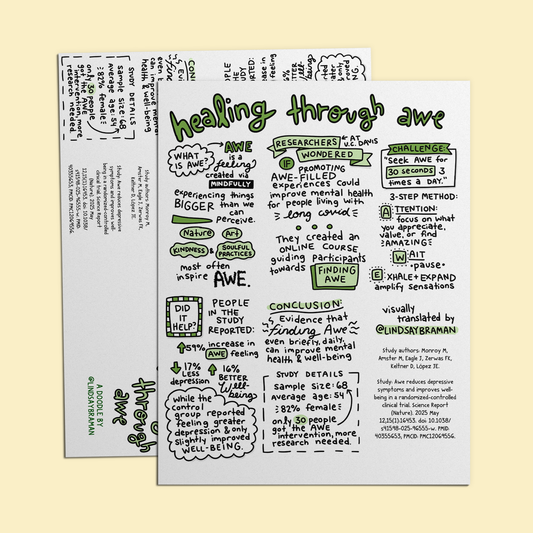 healing through awe
WHAT
IS AWE?
AWE
is a
feeling
created via
MINDFULLY
experiencing things
BIGGER than we
can
perceive.
Nature
Art
KINDNESS
&
SOULFUL
PRACTICES
most often
inspire AWE.
DID
IT
HELP?
PEOPLE
IN THE
STUDY
REPORTED:
59% increase in
AWE feeling
17%
LESS
depression
16%
BETTER
Well-
being.
while the
control
group reported
feeling greater
depression & only
slightly improved
WELL-BEING.
RESEARCHERS
AT
U.C. DAVIS
WONDERED
IF PROMOTING
AWE-FILLED
experiences could
improve mental health
for people living with
long covid
They created an
ONLINE COURSE
guiding participants
towards
FINDING
AWE
CONCLUSION:
Evidence that
Finding Awe
even briefly, daily,
can improve mental
health & well-being
STUDY DETAILS
sample size: 68
Average age: 54
82% female
only 30 people
got the AWE
intervention, more
research needed.
CHALLENGE:
"Seek AWE for
30 seconds 3
times a DAY."
3-STEP METHOD:
ATTENTION:
focus on what
you appreciate,
value, or find
AMAZING
WAIT
•pause•
EXHALE+EXPAND
amplify sensations
visually
translated by
@LINDSAYBRAMAN
Study authors: Monroy M,
Amster M, Eagle J, Zerwas FK,
Keltner D, López JE.
Study: Awe reduces depressive
symptoms and improves well-
being in a randomized-controlled
clinical trial. Science Report
(Nature). 2025 May
12;15(1):16453. doi: 10.1038/
s41598-025-96555-w. PMID:
40355653; PMCID: PMC12069556.
STUDY DETAILS
sample size: 68
Average age: 54
82% female
only 30 people
got the AWE
intervention, more
research needed.
Study authors: Monroy M,
Amster M, Eagle J, Zerwas FK,
Keltner D, López JE.
Study: Awe reduces depressive
symptoms and improves well-
being in a randomized-controlled
clinical trial. Science Report
(Nature). 2025 May
12;15(1):16453. doi: 10.1038/
s41598-025-96555-w. PMID:
40355653; PMCID: PMC12069556.
A DOODLE BY
@LINDSAYBRAMAN
through
awe